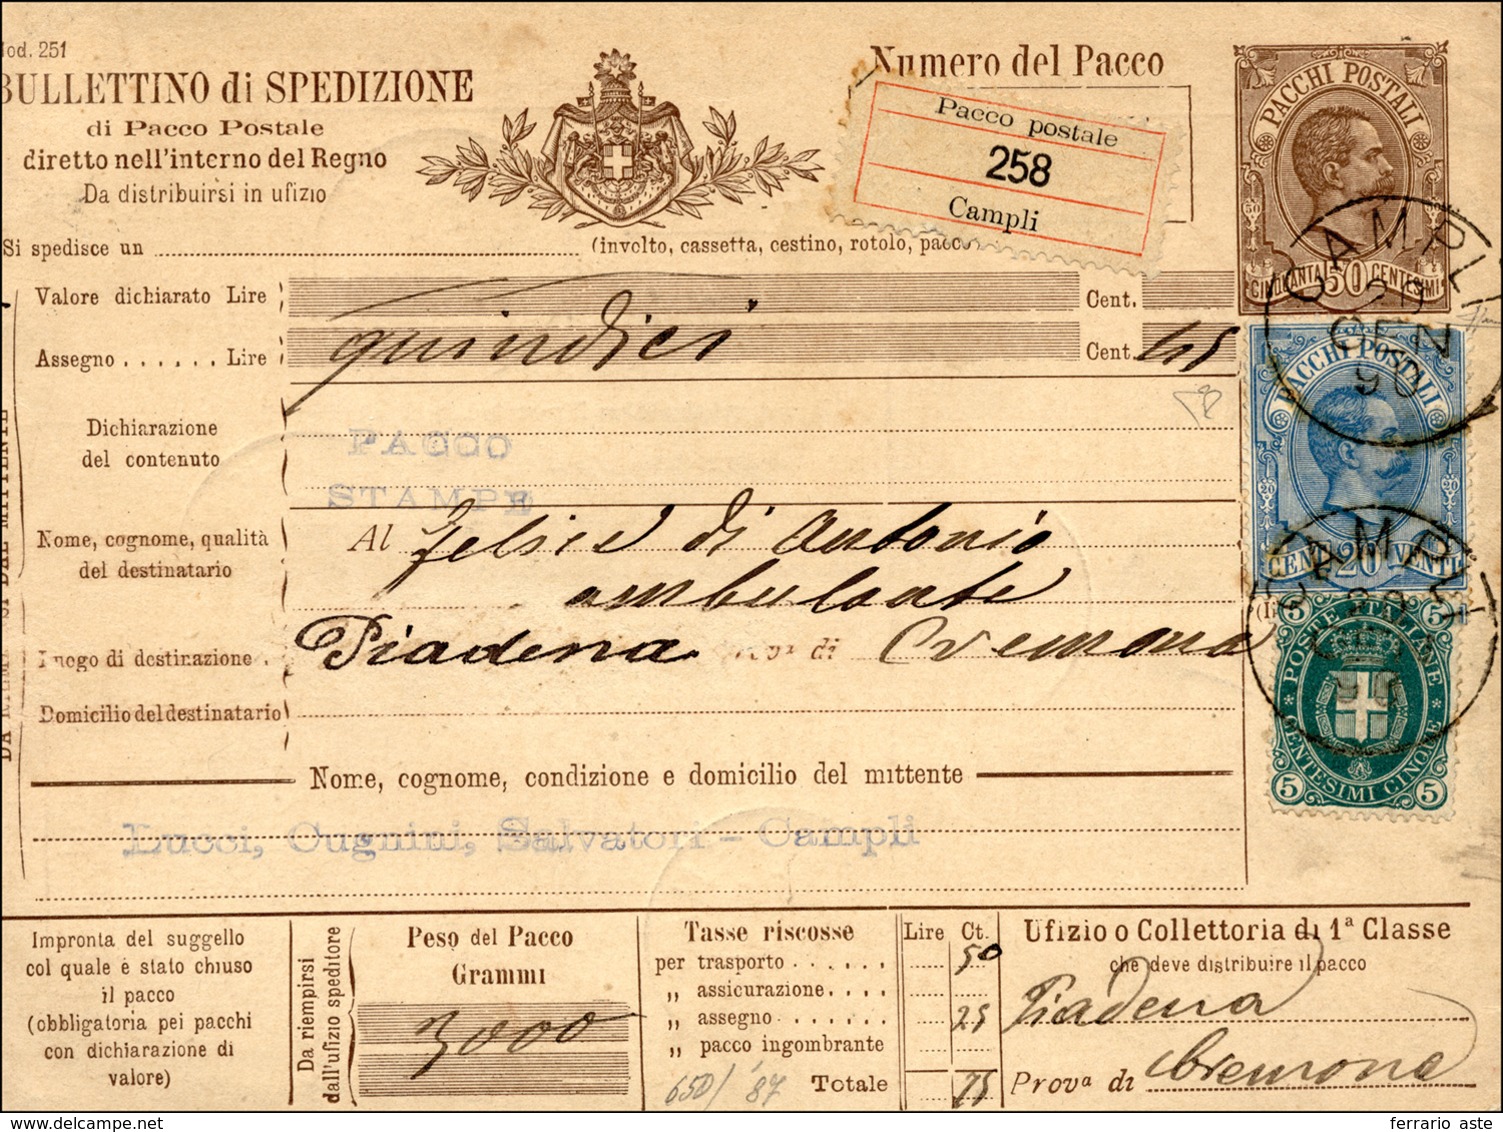 Mod. 251
BULLETTINO di SPEDIZIONE
di Pacco Postale
diretto nell'interno del Regno
Da distribuirsi in ufizio
Numero del Pacco
Pacco postale
258
Campli
PACCHI POSTALI
50
CINQUANTA 50 CENTESIMI
CAMPLI
20
GEN
90
Si spedisce un
(involto, cassetta, cestino, rotolo, pacco
Valore dichiarato Lire
Cent.
Assegno ...... Lire
quindici
Cent. 45
PACCHI POSTALI
20 20
CENTI 20 VENTI
Dichiarazione
del contenuto
PACCO
STAMPE
Nome, cognome, qualità
del destinatario
Al Felice di Antonio
ambulante
CAMPLI
Luogo di destinazione .
Piadena Prov.a di Cremona
Domicilio del destinatario
5 POSTE ITALIANE 5
5 CENTESIMI CINQUE 5
DA RIEMPIRSI DAL MITTENTE
Nome, cognome, condizione e domicilio del mittente
Lucci, Cugnini, Salvatori - Campli
Impronta del suggello
col quale è stato chiuso
il pacco
(obbligatoria pei pacchi
con dichiarazione di
valore)
Da riempirsi
dall'ufizio speditore
Peso del Pacco
Grammi
3000
Tasse riscosse
Lire Ct.
per trasporto ...... 50
„ assicurazione ....
„ assegno ...... 25
„ pacco ingombrante
Totale 75
650/ '87
Ufizio o Collettoria di 1ª Classe
che deve distribuire il pacco
Piadena
Prov.a di Cremona
ferrario aste